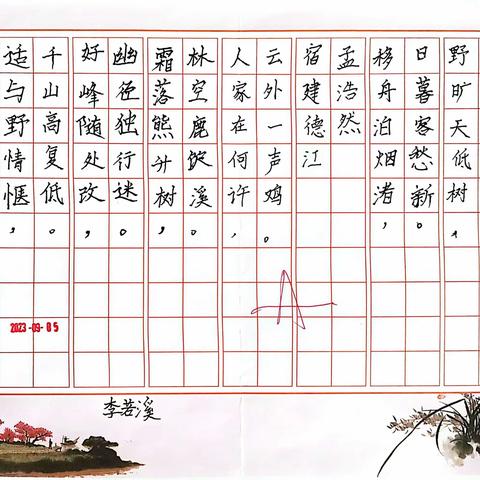 适与野情惬，
千山高复低。
好峰随处改，
幽径独行迷。
霜落熊升树，
林空鹿饮溪。
人家在何许，
云外一声鸡。
宿建德江
孟浩然
移舟泊烟渚，
日暮客愁新。
野旷天低树，
A
2023-09-05
李若溪